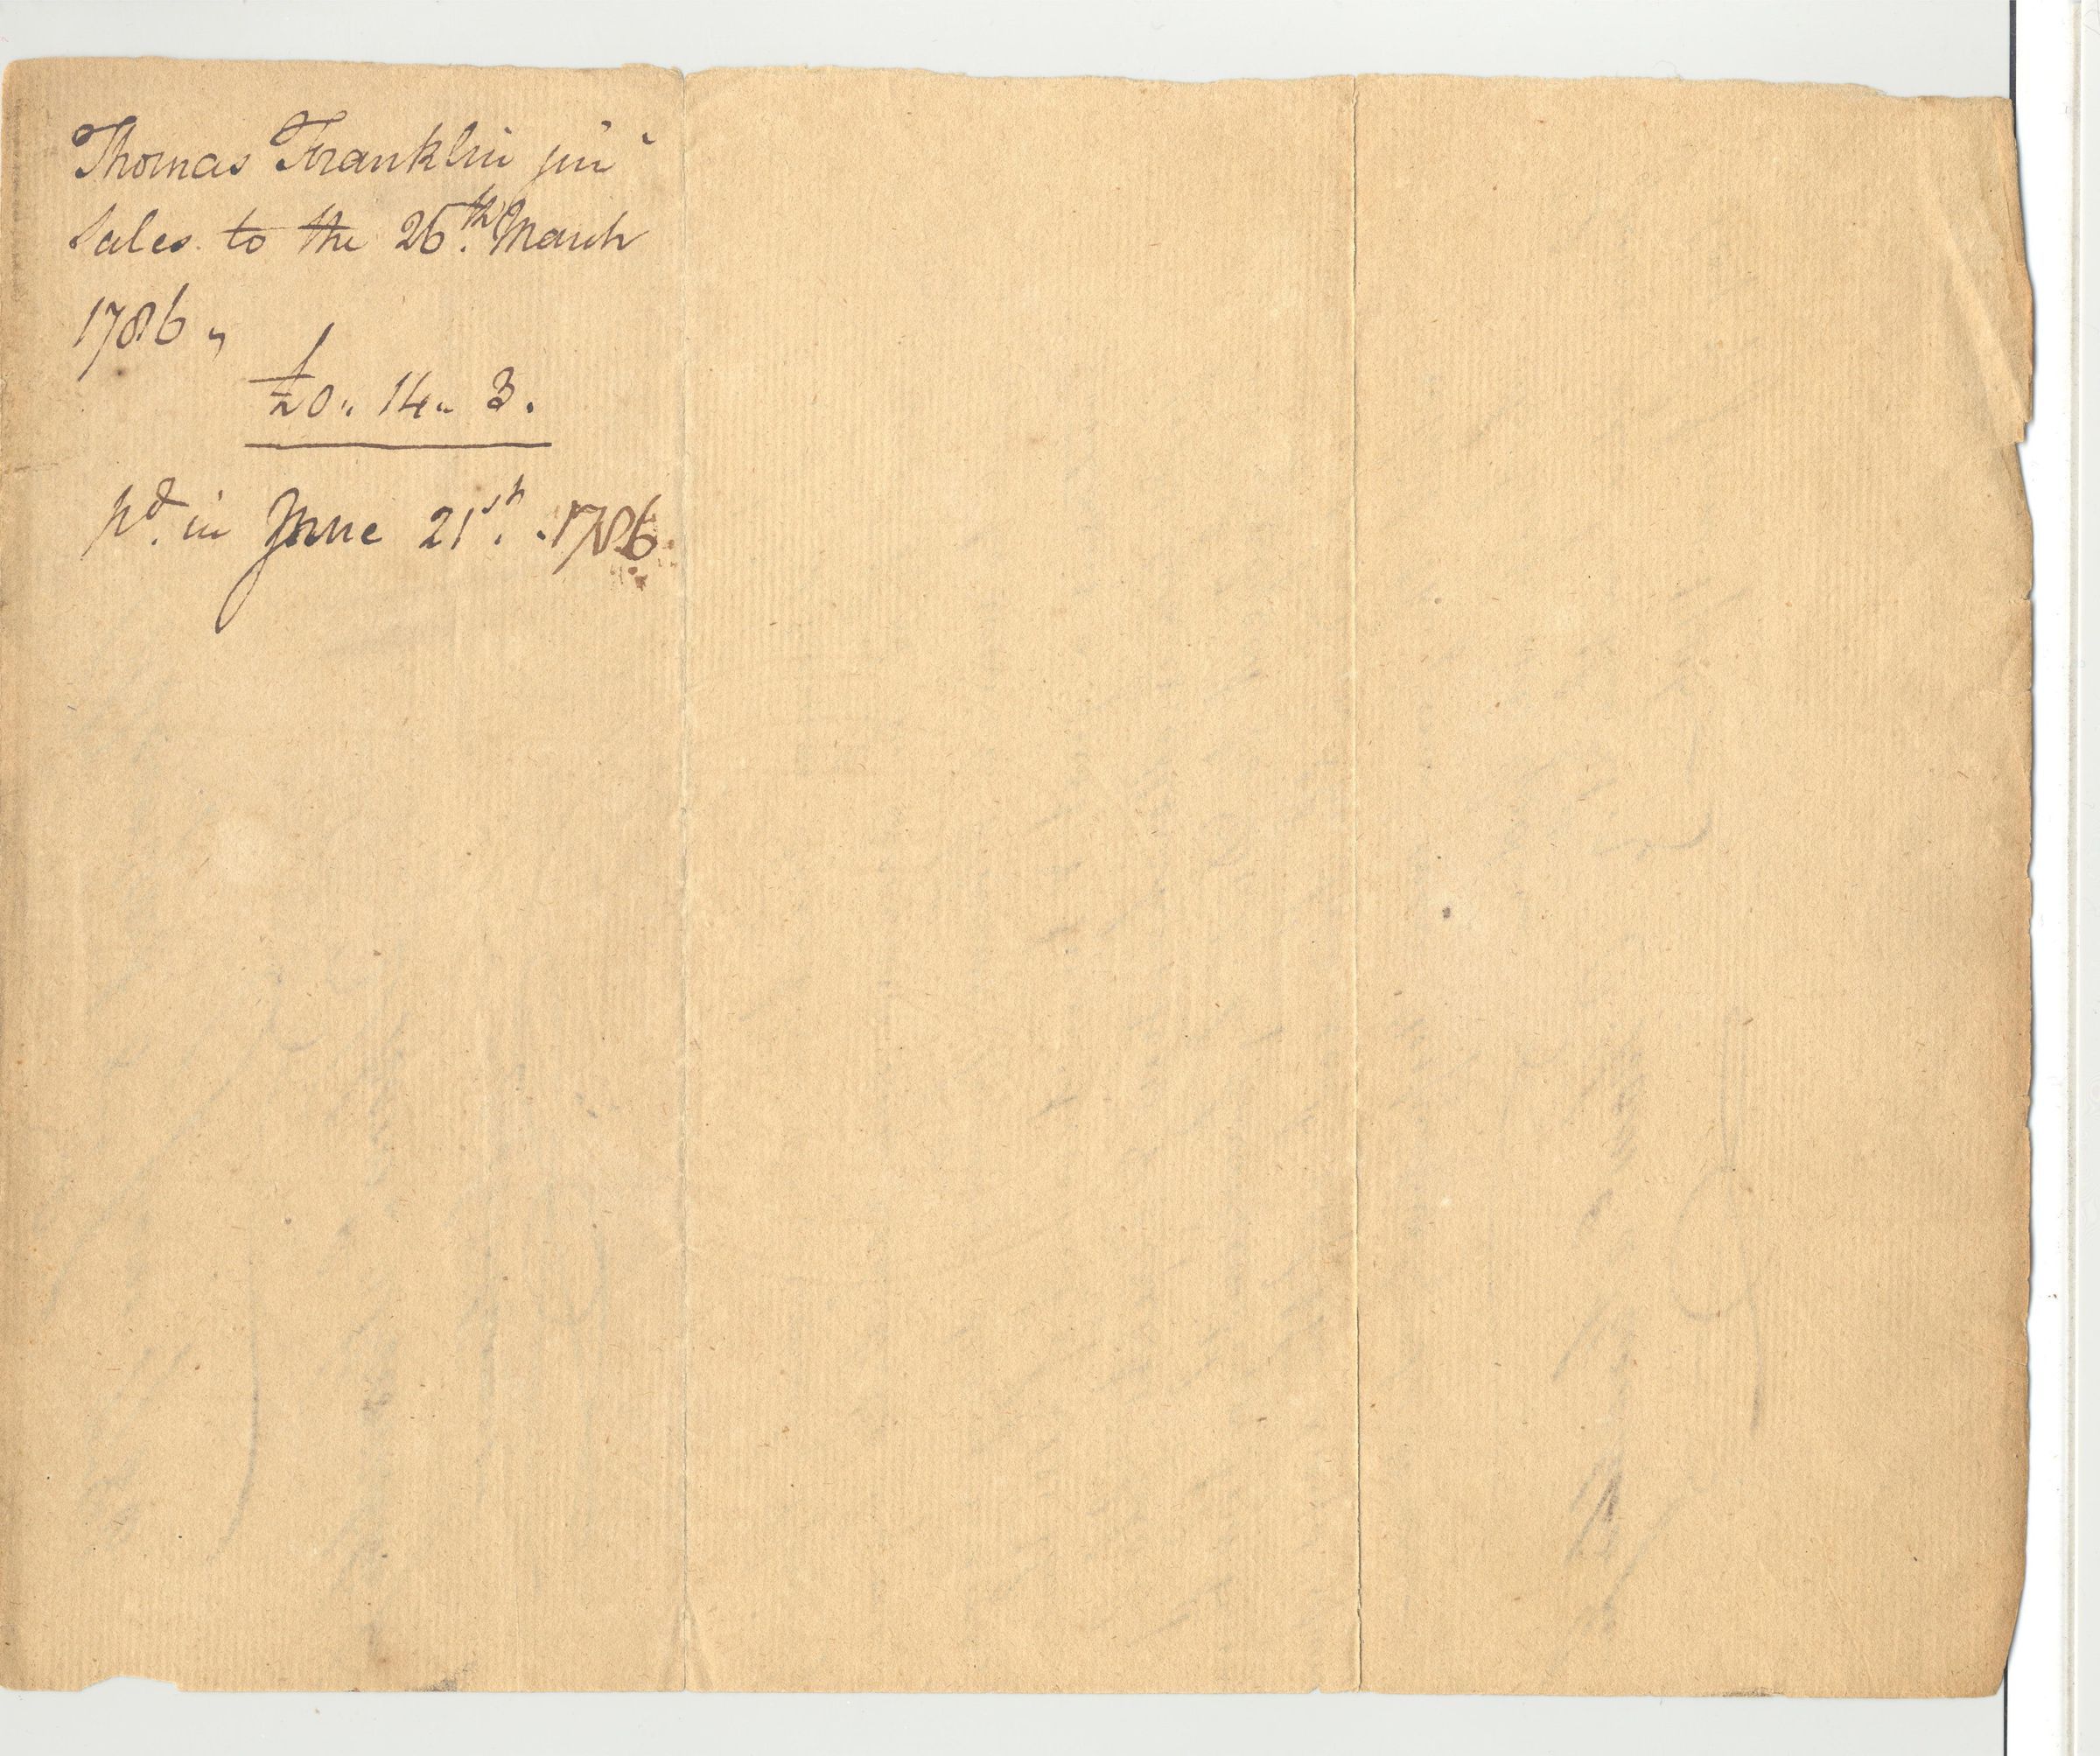 Thomas Franklin jun̄
Sales to the 26th. March
1786 „
£0„ 14„ 3.
pd. in June 21st. 1786